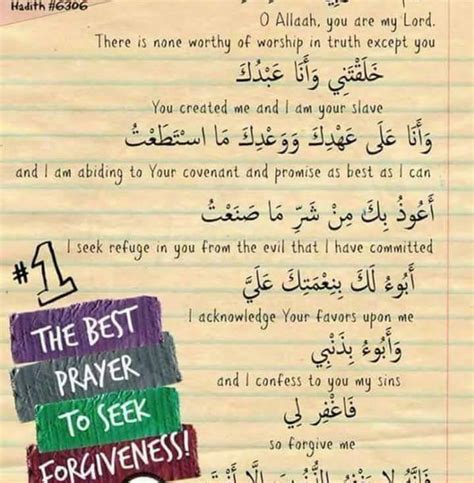 Hadith #6306
O Allaah, you are my Lord.
There is none worthy of worship in truth except you
خَلَقْتَنِي وَأَنَا عَبْدُكَ
You created me and I am your slave
وَأَنَا عَلَى عَهْدِكَ وَوَعْدِكَ مَا اسْتَطَعْتُ
and I am abiding to Your covenant and promise as best as I can
أَعُوذُ بِكَ مِنْ شَرِّ مَا صَنَعْتُ
I seek refuge in you from the evil that I have committed
أَبُوءُ لَكَ بِنِعْمَتِكَ عَلَيَّ
I acknowledge Your favors upon me
وَأَبُوءُ بِذَنْبِي
and I confess to you my sins
فَاغْفِر لِي
so forgive me
#1
THE BEST
PRAYER
TO SEEK
FORGIVENESS!